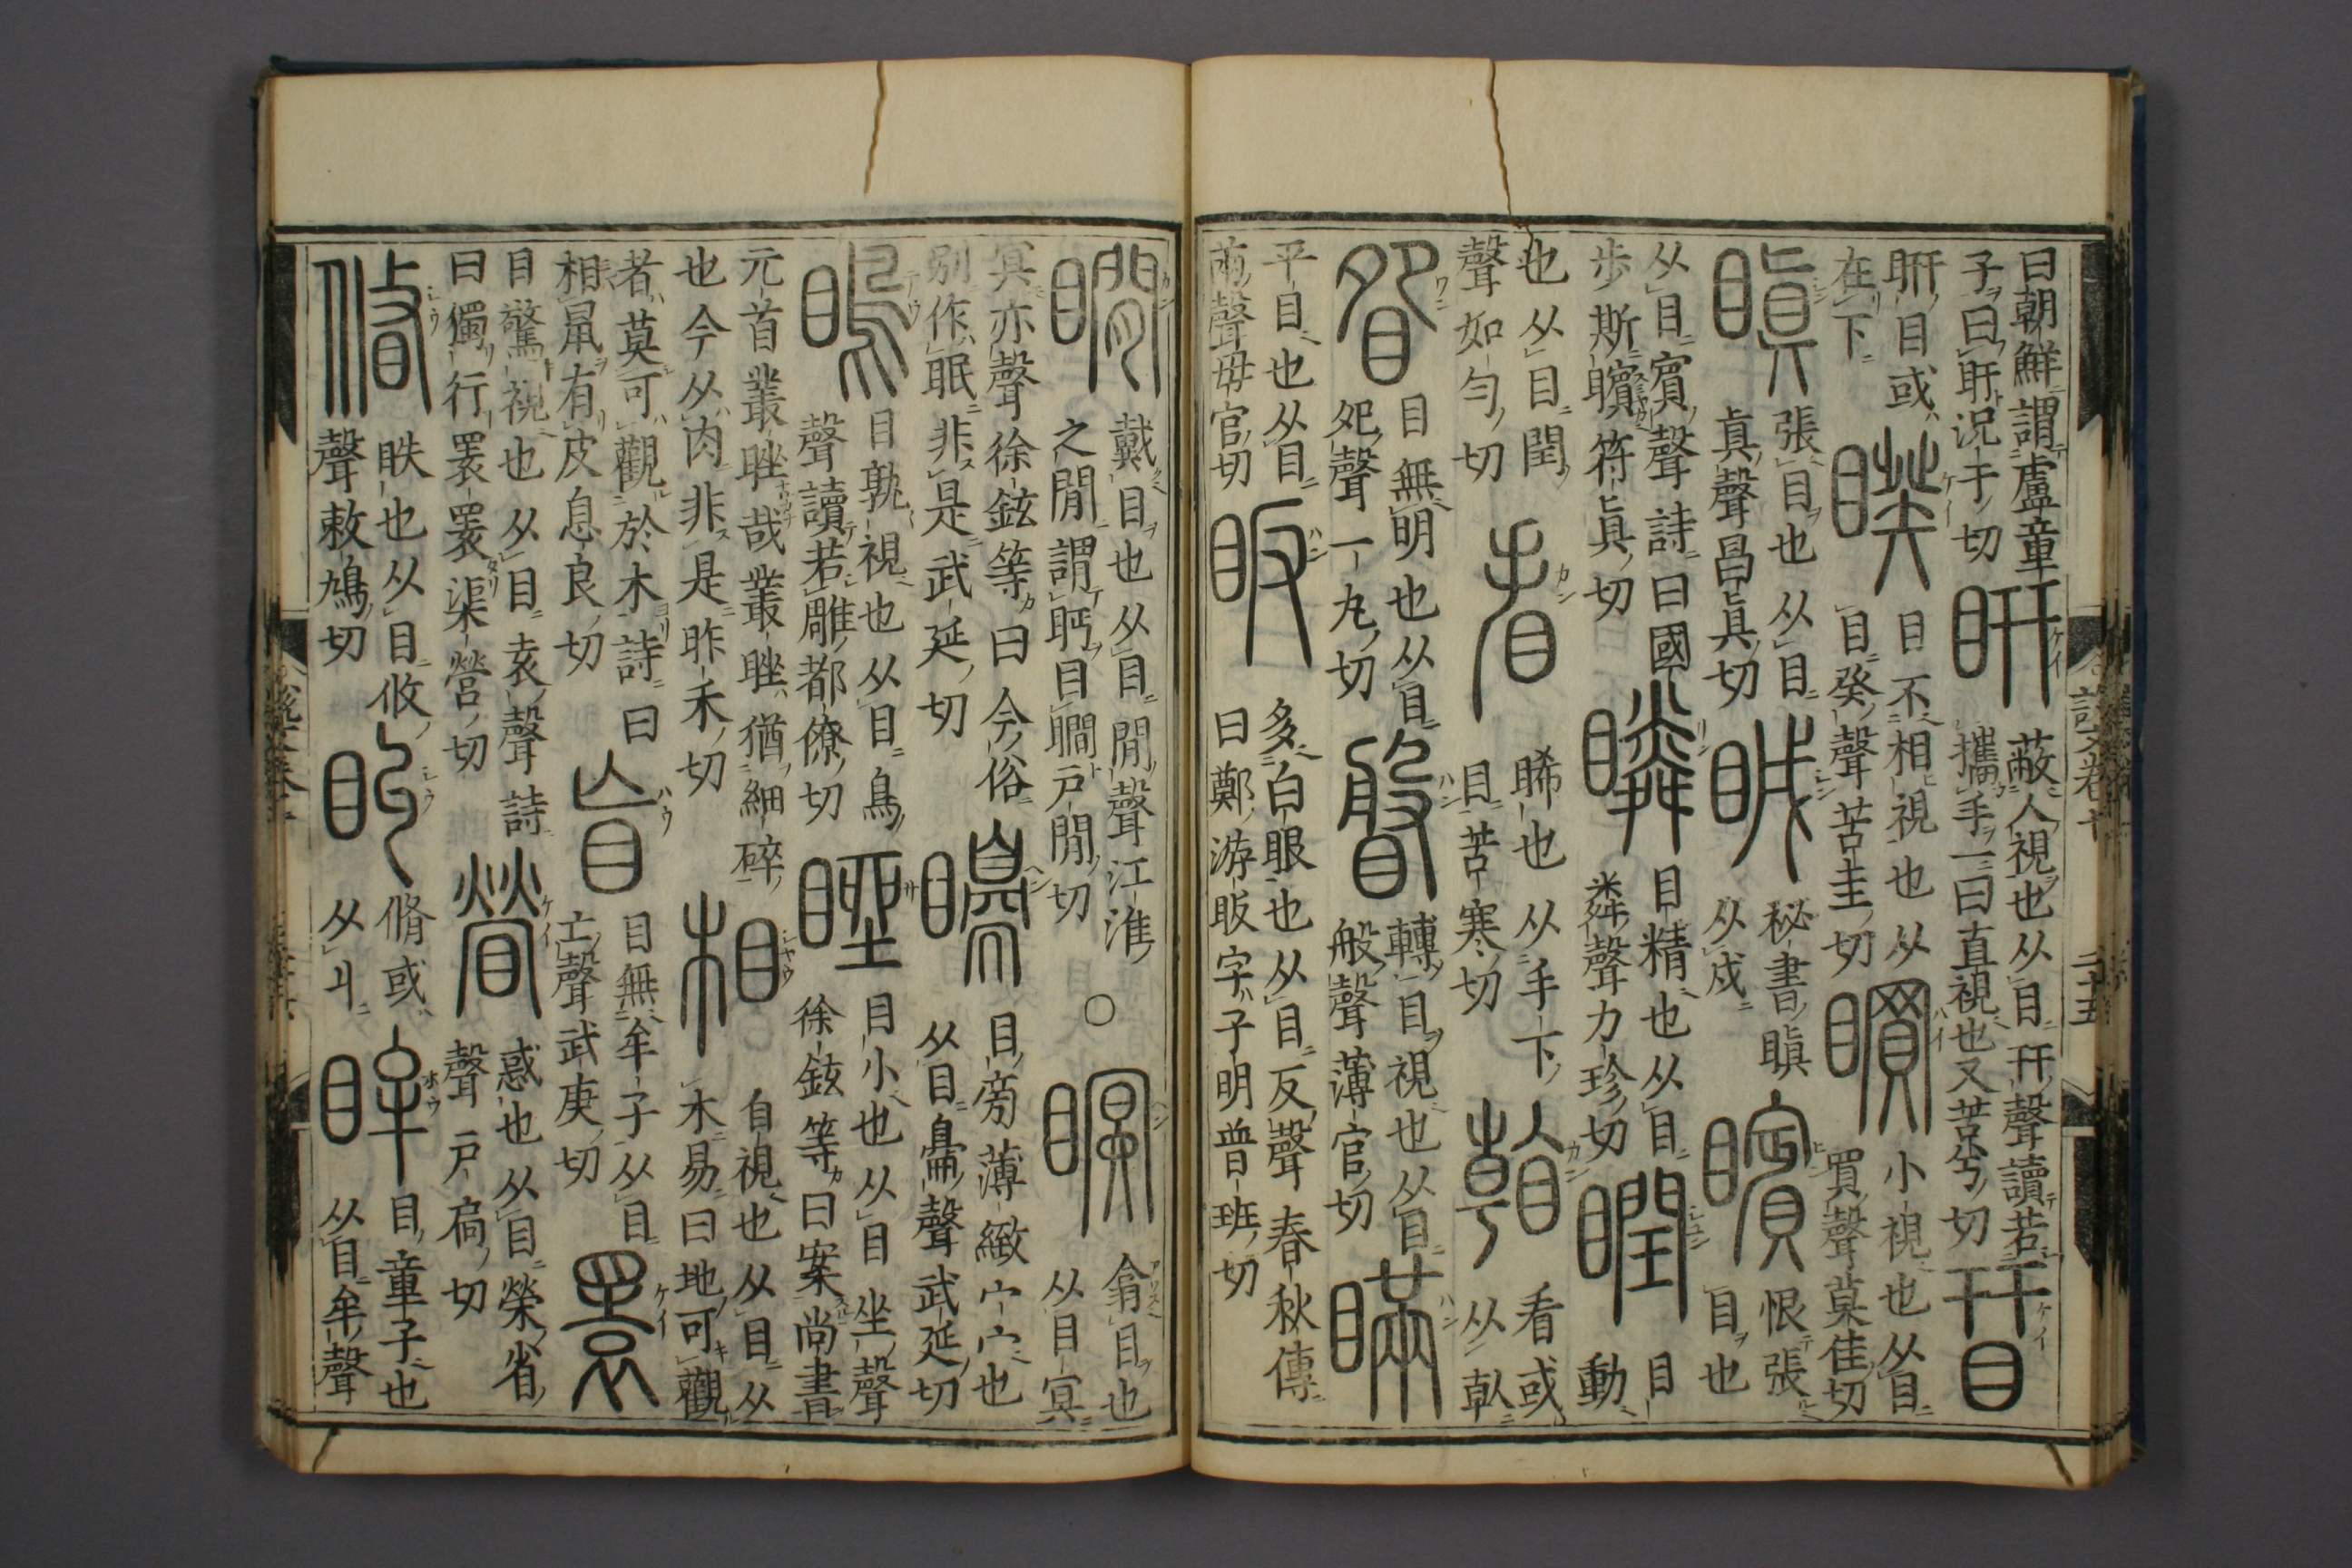 曰朝鮮謂盧童
子曰盱況于切
䀘
蔽人視也从目幵聲讀若
攜手一曰直視也又苦兮切
䀘目或
在下
睽
目不相視也从
目癸聲苦圭切
䁲
小視也从目
買聲莫佳切
瞋
張目也从目
眞聲昌眞切
䀕
秘書瞋
从戍
矉
恨張
目也
从目賓聲詩曰國
步斯矉符眞切
瞵
目精也从目
粦聲力珍切
瞤
目
動
也从目閏
聲如勻切
看
睎也从手下
目苦寒切
看或
从倝
眢
目無明也从目
夗聲一丸切
轉目視也从目
般聲薄官切
瞞
平目也从目
㒼聲毋官切
眅
多白眼也从目反聲春秋傳
曰鄭游眅字子明普班切
説文卷十 二十五
瞯
戴目也从目閒聲江淮
之閒謂眄目瞯戸閒切
○
瞑
翕目也
从目冥
冥亦聲徐鉉等曰今俗
別作眠非是武延切
矏
目旁薄緻宀宀也
聲武延切
目孰視也从目鳥
聲讀若雕都僚切
睉
目小也从目坐聲
徐鉉等曰案尚書
元首叢睉哉叢睉猶細碎
也今从肉非是昨禾切
相
自視也从目从
木易曰地可觀
者莫可觀於木詩曰
相鼠有皮息良切
盲
目無牟子从目
亡聲武庚切
瞏
目驚視也从目袁聲詩
曰獨行瞏瞏渠營切
惑也从目榮省
聲戸扃切
眣也从目攸
聲敕鳩切
或
从丩
眸
目童子也
从目牟聲